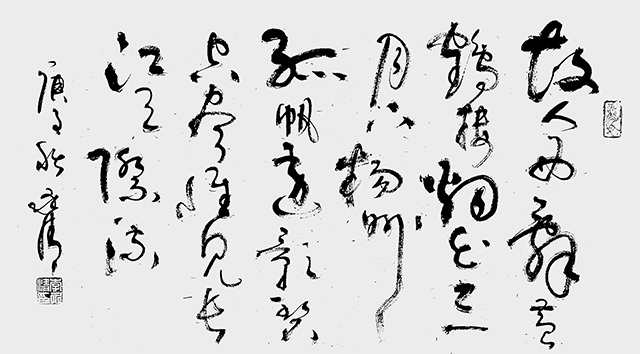 故人西辭黃
鶴樓烟花三
月下揚州
孤帆遠影碧
空盡惟見長
江天際流
庚子秋